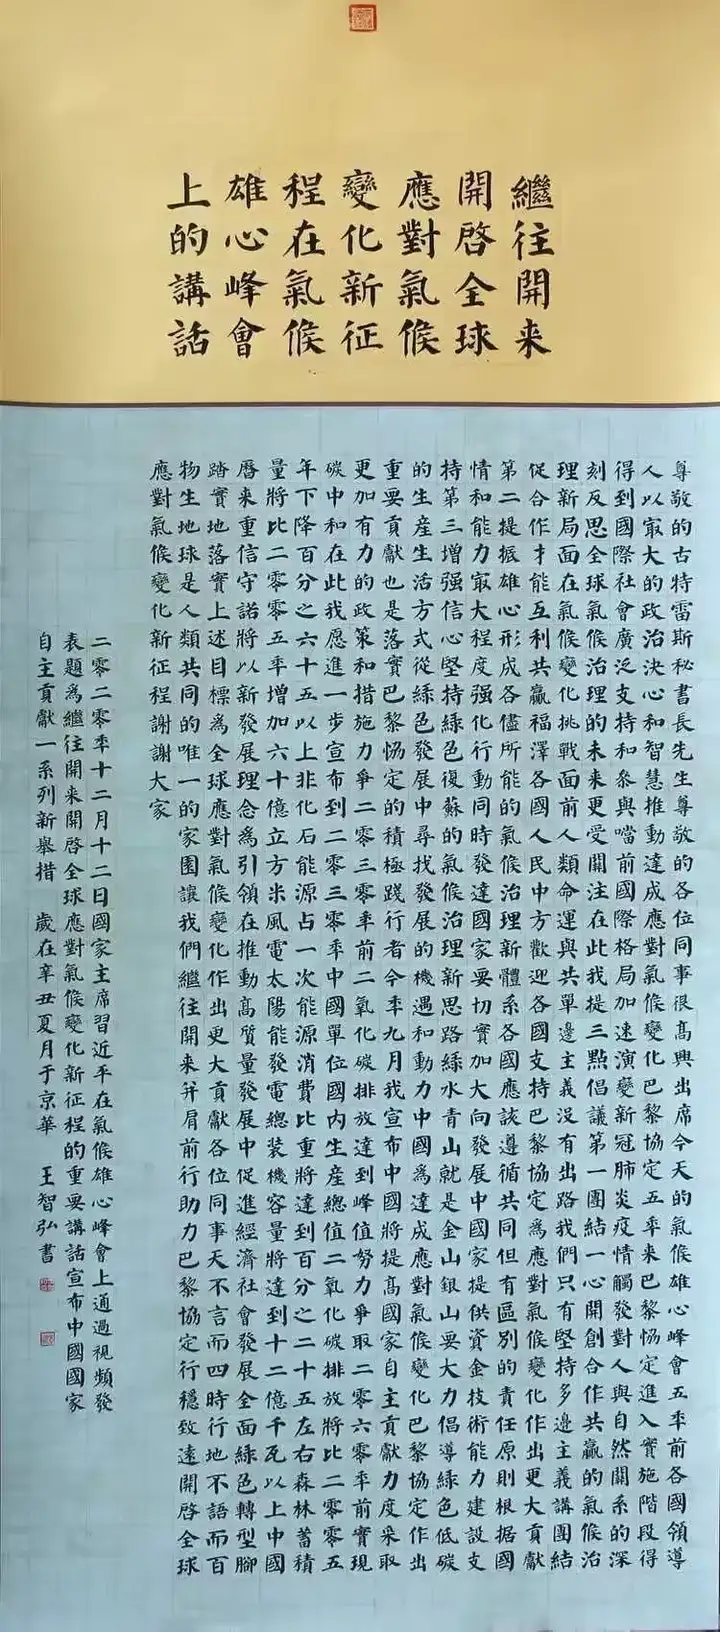 繼往開来
開啓全球
應對氣候
變化新征
程在氣候
雄心峰會
上的講話
尊敬的古特雷斯秘書長先生尊敬的各位同事很高興出席今天的氣候雄心峰會五年前各國領導
人以㝡大的政治決心和智慧推動達成應對氣候變化巴黎協定五年来巴黎協定進入實施階段得
得到國際社會廣泛支持和參與噹前國際格局加速演變新冠肺炎疫情觸發對人與自然關系的深
刻反思全球氣候治理的未来更受關注在此我提三點倡議第一團結一心開創合作共贏的氣候治
理新局面在氣候變化挑戰面前人類命運與共單邊主義没有出路我們只有堅持多邊主義講團結
促合作才能互利共贏福澤各國人民中方歡迎各國支持巴黎協定為應對氣候變化作出更大貢獻
第二提振雄心形成各儘所能的氣候治理新體系各國應該遵循共同但有區别的責任原則根据國
情和能力㝡大程度强化行動同時發達國家要切實加大向發展中國家提供資金技術能力建設支
持第三增强信心堅持綠色復蘇的氣候治理新思路綠水青山就是金山銀山要大力倡導綠色低碳
的生産生活方式從綠色發展中尋找發展的機遇和動力中國為達成應對氣候變化巴黎協定作出
重要貢獻也是落實巴黎協定的積極踐行者今年九月我宣布中國將提高國家自主貢獻力度采取
更加有力的政策和措施力爭二零三零年前二氧化碳排放達到峰值努力爭取二零六零年前實現
碳中和在此我愿進一步宣布到二零三零年中國單位國内生産總值二氧化碳排放將比二零零五
年下降百分之六十五以上非化石能源占一次能源消費比重將達到百分之二十五左右森林蓄積
量將比二零零五年增加六十億立方米風電太陽能發電總装機容量將達到十二億千瓦以上中國
曆来重信守諾將以新發展理念為引領在推動高質量發展中促進經濟社會發展全面綠色轉型腳
踏實地落實上述目標為全球應對氣候變化作出更大貢獻各位同事天不言而四時行地不語而百
物生地球是人類共同的唯一的家園讓我們繼往開来并肩前行助力巴黎協定行穩致遠開啓全球
應對氣候變化新征程謝謝大家
二零二零年十二月十二日國家主席習近平在氣候雄心峰會上通過視頻發
表題為繼往開来開啓全球應對氣候變化新征程的重要講話宣布中國國家
自主貢獻一系列新舉措 歲在辛丑夏月于京華 王智弘書